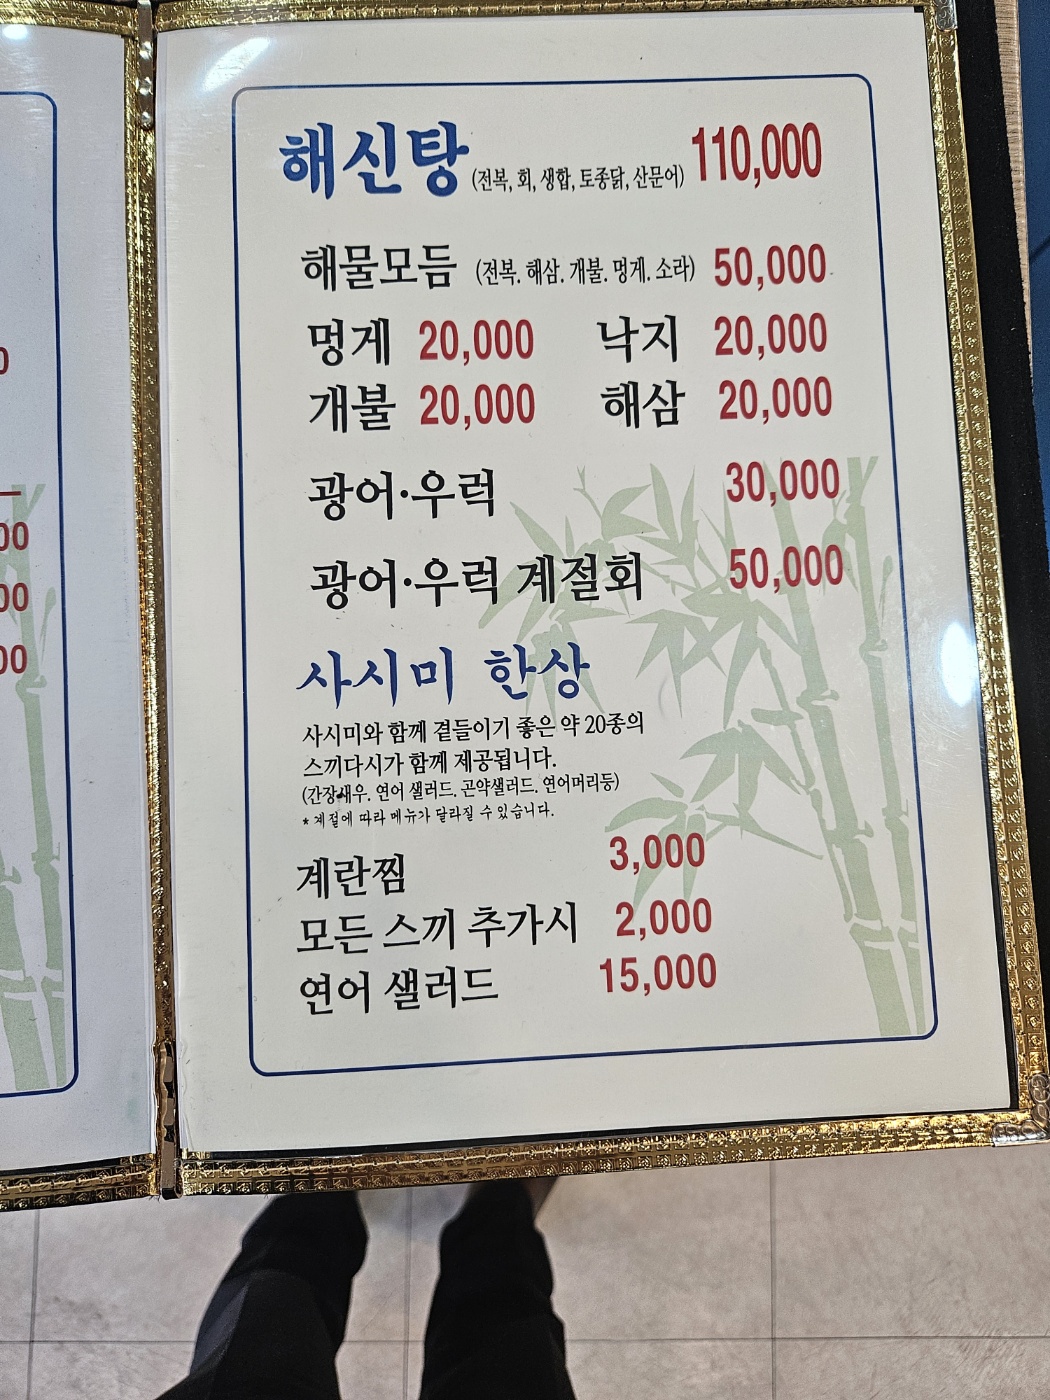 해신탕 (전복, 회, 생합, 토종닭, 산문어) 110,000
해물모듬 (전복. 해삼. 개불. 멍게. 소라) 50,000
멍게 20,000 낙지 20,000
개불 20,000 해삼 20,000
광어·우럭 30,000
광어·우럭 계절회 50,000
사시미 한상
사시미와 함께 곁들이기 좋은 약 20종의
스끼다시가 함께 제공됩니다.
(간장새우. 연어 샐러드. 곤약샐러드. 연어머리등)
* 계절에 따라 메뉴가 달라질 수 있습니다.
계란찜 3,000
모든 스끼 추가시 2,000
연어 샐러드 15,000